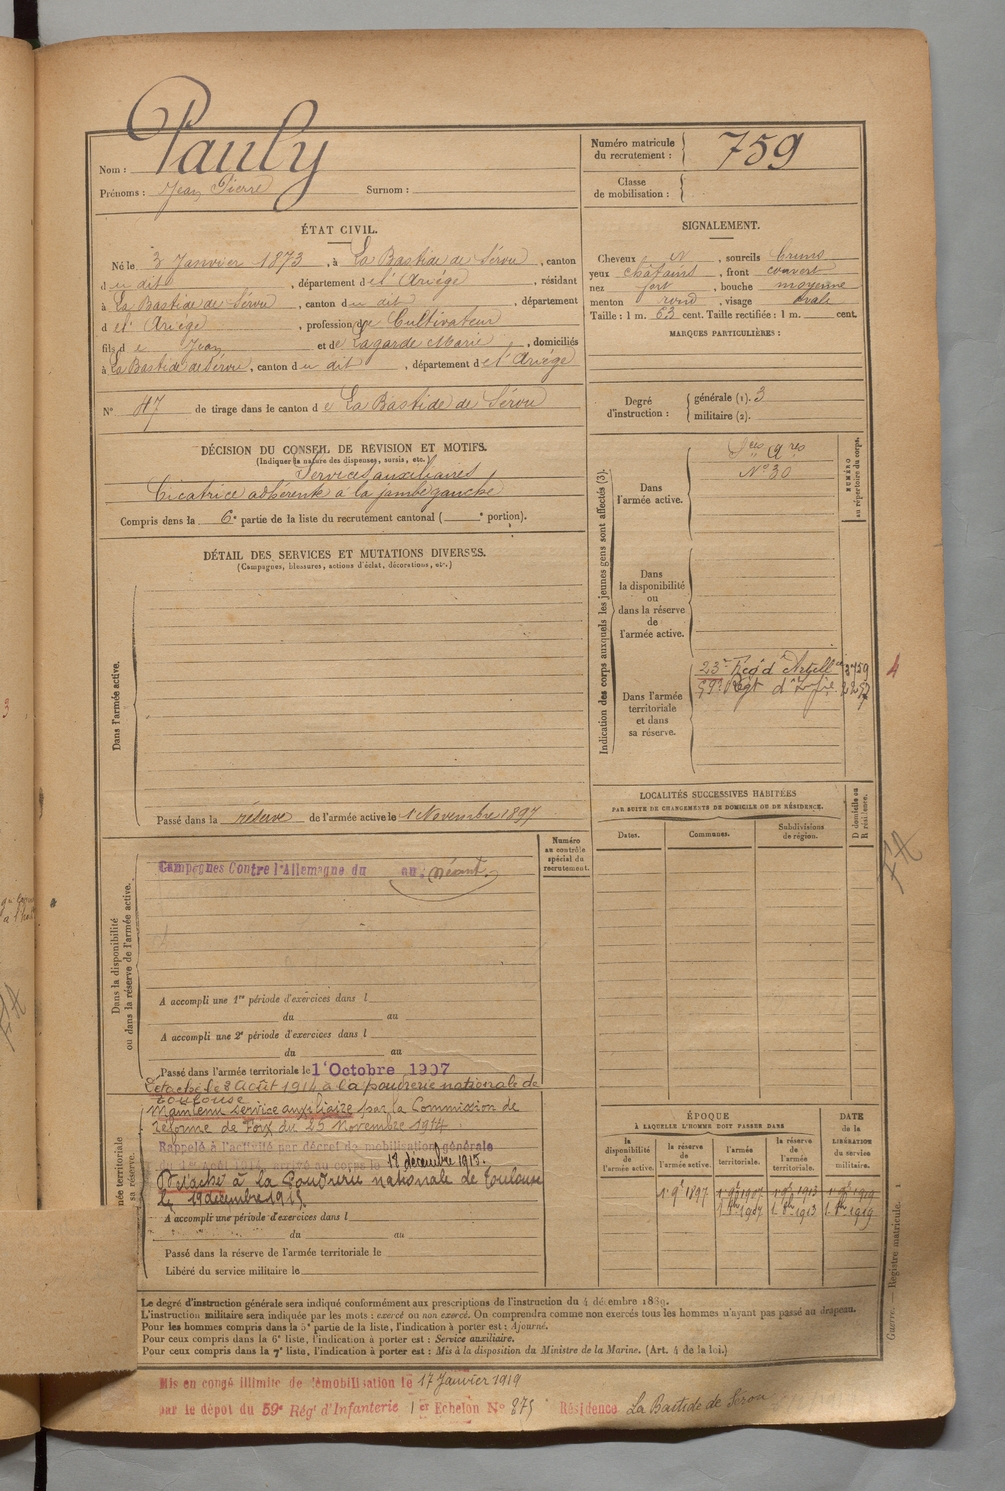 Nom : Pauly
Prénoms : Jean Pierre Surnom :
Numéro matricule du recrutement : 759
Classe de mobilisation :
ÉTAT CIVIL.
Né le 3 Janvier 1873, à La Bastide de Sérou, canton
du dit, département de l'Ariége, résidant
à La Bastide de Sérou, canton du dit, département
de l'Ariège, profession de Cultivateur
fils de Jean et de Lagarde Marie, domiciliés
à La Bastide de Sérou, canton du dit, département de l'Ariége
N° 47 de tirage dans le canton de La Bastide de Sérou
SIGNALEMENT.
Cheveux N, sourcils bruns
yeux châtains, front couvert
nez fort, bouche moyenne
menton rond, visage ovale
Taille : 1 m. 63 cent. Taille rectifiée : 1 m. cent.
MARQUES PARTICULIÈRES :
Degré d'instruction : générale (1). 3
militaire (2).
DÉCISION DU CONSEIL DE REVISION ET MOTIFS.
(Indiquer la nature des dispenses, sursis, etc.)
Services auxiliaires
Cicatrice adhérente à la jambe gauche
Compris dans la 6e partie de la liste du recrutement cantonal ( e portion).
DÉTAIL DES SERVICES ET MUTATIONS DIVERSES.
(Campagnes, blessures, actions d'éclat, décorations, etc.)
Dans l'armée active.
Passé dans la réserve de l'armée active le 1 Novembre 1897
Indication des corps auxquels les jeunes gens sont affectés (3).
NUMÉRO au répertoire du corps.
Dans l'armée active.
N° 30
Dans la disponibilité ou dans la réserve de l'armée active.
Dans l'armée territoriale et dans sa réserve.
23e Reg d'Artellie 3759
59e Regt d'Infie
4
LOCALITÉS SUCCESSIVES HABITÉES
PAR SUITE DE CHANGEMENTS DE DOMICILE OU DE RÉSIDENCE.
Dates. Communes. Subdivisions de région. D domicile ou R résidence.
Numéro au contrôle spécial du recrutement.
Dans la disponibilité ou dans la réserve de l'armée active.
Campagnes Contre l'Allemagne du au : néant.
A accompli une 1re période d'exercices dans l
du au
A accompli une 2e période d'exercices dans l
du au
Passé dans l'armée territoriale le 1er Octobre 1907
Détaché le 8 Août 1914 à la poudrerie nationale de
Toulouse
Maintenu service auxiliaire par la Commission de
réforme de Foix du 25 Novembre 1914
Rappelé à l'activité par décret de mobilisation générale
du 1er Août 1914 arrivé au corps le 12 décembre 1915.
Détaché à la Poudrerie nationale de Toulouse
le 19 décembre 1915.
A accompli une période d'exercices dans l
du au
Passé dans la réserve de l'armée territoriale le
Libéré du service militaire le
ÉPOQUE
À LAQUELLE L'HOMME DOIT PASSER DANS
la disponibilité de l'armée active.
la réserve de l'armée active.
l'armée territoriale.
la réserve de l'armée territoriale.
DATE de la LIBÉRATION du service militaire.
1 9e 1897 1 9e 1907 1 9e 1913 1 9e 1919
1. 8bre 1907 1. 8bre 1913 1. 8bre 1919
Le degré d'instruction générale sera indiqué conformément aux prescriptions de l'instruction du 4 décembre 1889.
L'instruction militaire sera indiquée par les mots : exercé ou non exercé. On comprendra comme non exercés tous les hommes n'ayant pas passé au drapeau.
Pour les hommes compris dans la 5e partie de la liste, l'indication à porter est : Ajourné.
Pour ceux compris dans la 6e liste, l'indication à porter est : Service auxiliaire.
Pour ceux compris dans la 7e liste, l'indication à porter est : Mis à la disposition du Ministre de la Marine. (Art. 4 de la loi.)
Guerre. — Registre matricule.
Mis en congé illimité de démobilisation le 17 Janvier 1919
par le dépôt du 59e Régt d'Infanterie 1er Echelon N° 875 Résidence La Bastide de Serou